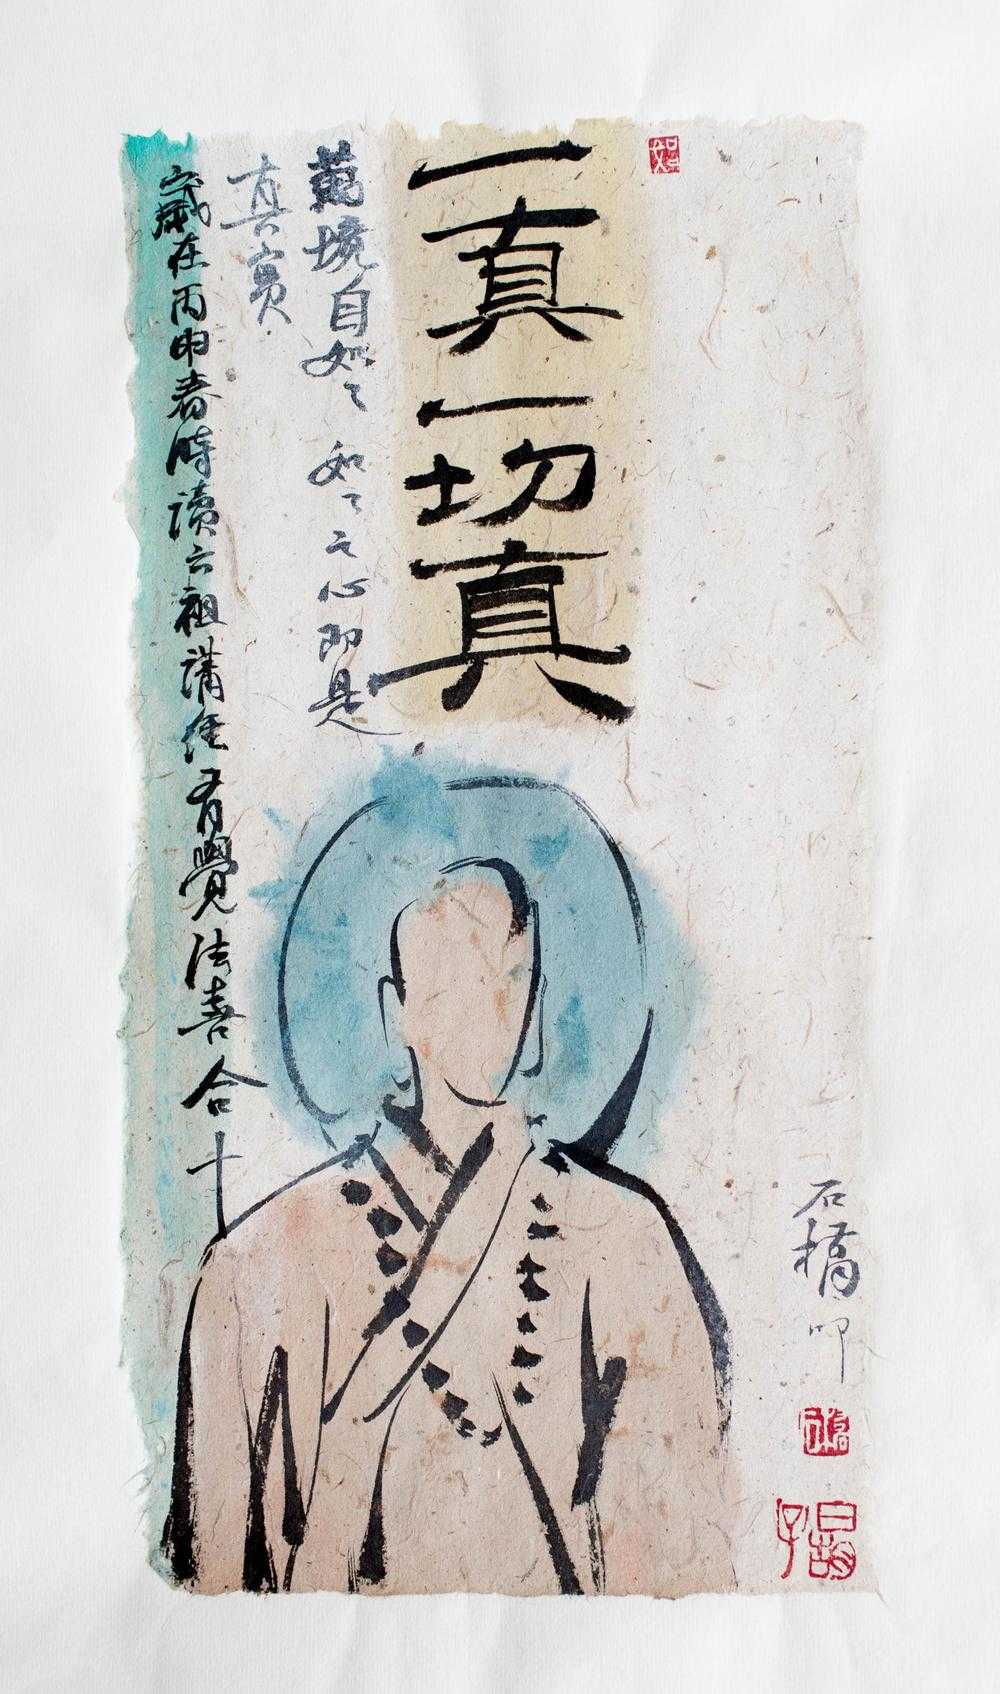 如
一真一切真
萬境自如如 如如之心即是
真實
歲在丙申春時讀六祖講經有覺法喜合十
石橋叩